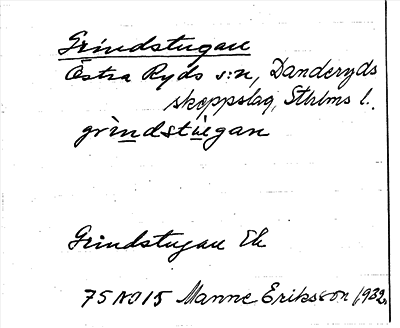 Grindstugan
Östra Ryds s:n, Danderyds
skeppslag, Sthlms l.
grìndstùgan
Grindstugan Ek
75 NO15 Manne Eriksson 1932.